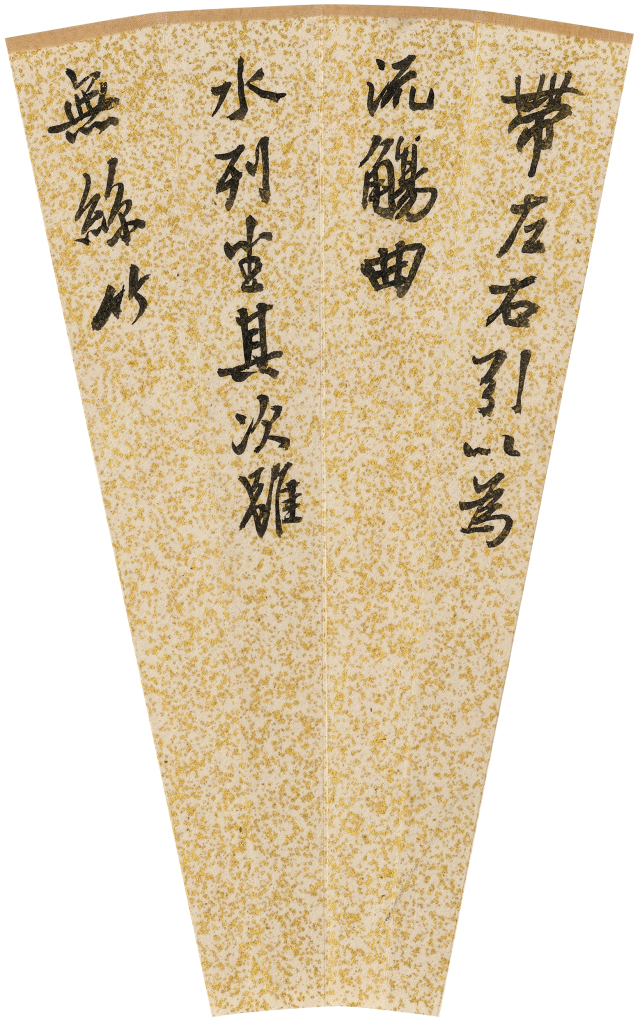 帶左右引以為
流觴曲
水列坐其次雖
無絲竹